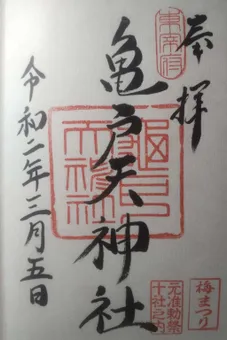 奉拝
東宰府
亀戸天神社
龜戸天神社
令和二年三月五日
元准勅祭十社之内
梅まつり